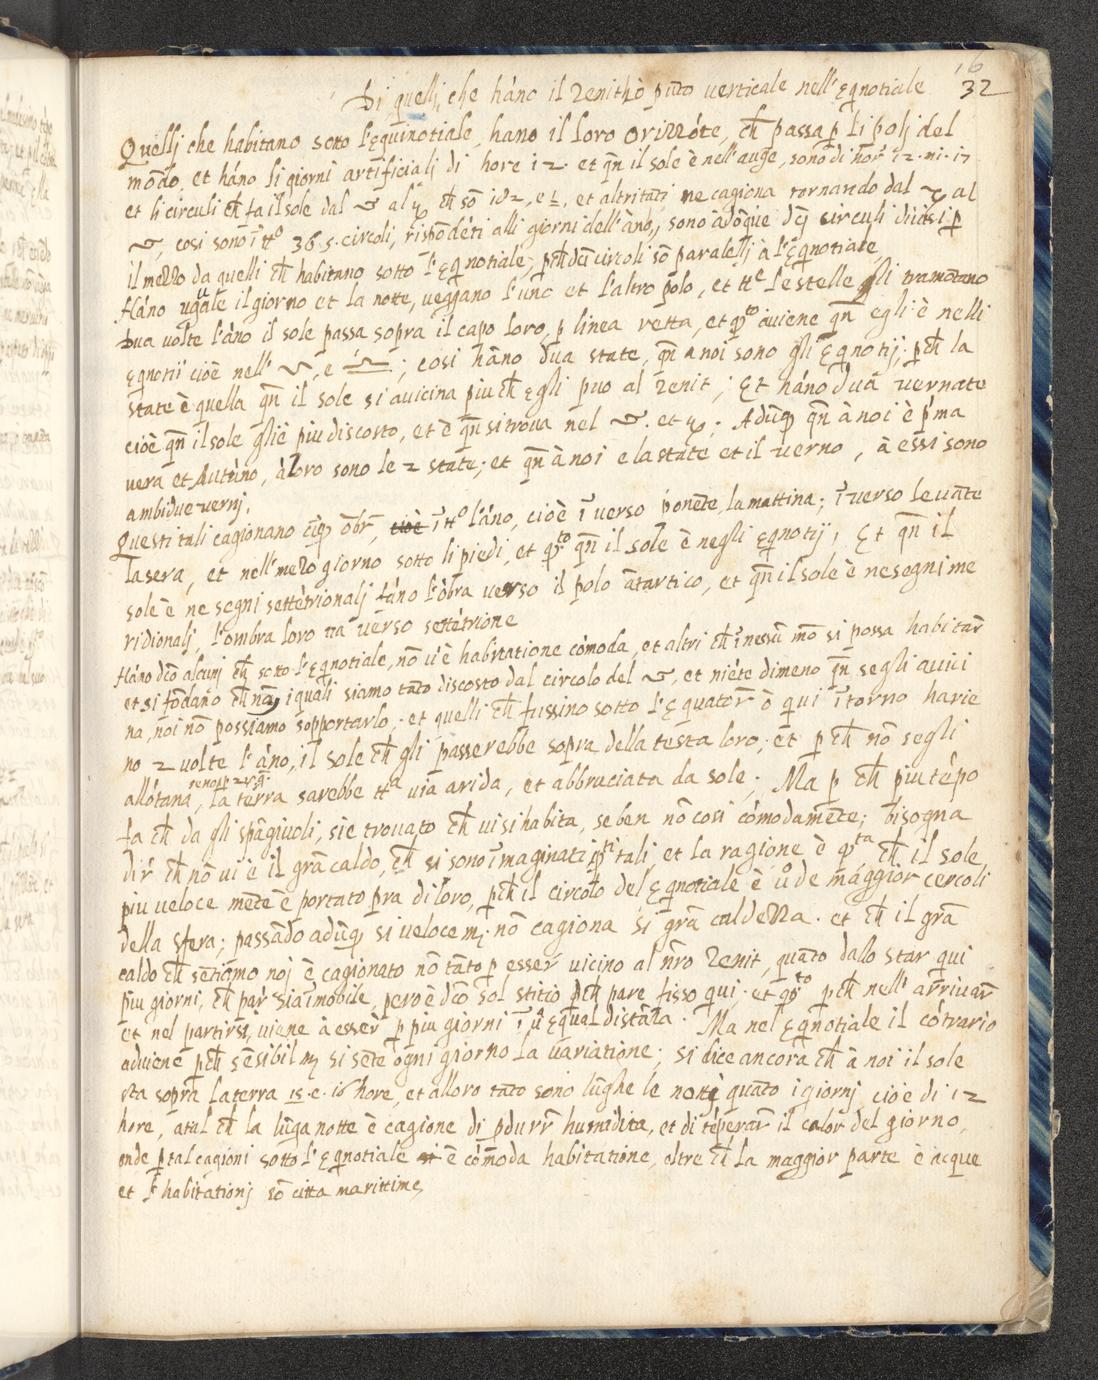 16
Di quelli, che háno il Zenithò pũto verticale nell' Eq̃notiale 32
Quellj che habitano sotto l'Equinotiale, hano il loro Orizzóte, ch̃ passa p li polj del
mõdo, et háno li giorni artificialj di hore 12. et qñ il sole è nell'auge, sono di hor̃ 12. mi. 17
et li circuli ch̃ fa il sole dal ♋ al ♑ ch̃ sõ 182, e ½, et altritãti ne cagiona tornando dal ♑ al
♋, cosi sono ĩ tto 365. circoli, rispõdéti alli giorni dell'àno, sono adõque dcj circuli diuisi p
il mezzo da quelli ch̃ habitano sotto l'Eq̃notiale, pch̃ dcj circoli sõ paralellj à l'Eq̃notiale,
Háno uguale il giorno et la notte, veggano l'uno et l'altro polo, et tte le stelle gli tramõtano
Dua volte l'áno il sole passa sopra il capo loro, p linea retta, et qsto auiene qñ egli è nelli
Eq̃notii cioè nell' ♈, e ♎; cosi hãno dua state, qñ a noi sono gli Eq̃notij; pch̃ la
state è quella qñ il sole si auicina piu ch̃ egli puo al Zenit; Et háno dua vernate
cioè qñ il sole gliè piu discosto, et è qñ si troua nel ♋. et ♑; Adũq qñ à noi è p'ma
vera et Autũno, à loro sono le 2 state; et qñ à noi e la state et il verno, à essi sono
ambidue vernj.
Questi tali cagionano cĩq õbr̃, cioè ĩ tto l'áno, cioè ĩ verso ponẽte, la mattina; ĩ verso leuãte
la sera, et nell'mezo giorno sotto li piedi, et qsto qñ il sole è negli eq̃notij; Et qñ il
sole è ne segni settétrionalj fáno l'óbra verso il polo ãtartico, et qñ il sole è ne segni me
ridionalj, l'ombra loro va verso settétrione
Háno dcõ alcunj ch̃ sotto l'Eq̃notiale, nõ u'è habitatione cómoda, et altri ch̃ ĩ nessũ mõ si possa habitar̃
et si fõdano ch̃ noj, i quali siamo tãto discosto dal circolo del ♋, et niéte dimeno qñ se gli auici
na, noi nõ possiamo sopportarlo; et quelli ch̃ fussino sotto l'Equator̃ ò qui ĩtorno harie
no 2 volte l'áno, il sole ch̃ gli passerebbe sopra della testa loro; et p ch̃ nõ segli
allótana, la terra sarebbe tta uia arida, et abbruciata da sole; Ma p ch̃ piu tépo
fa ch̃ da gli spãgiuoli, sie trouato ch̃ ui si habita, se ben nõ cosi cómodamẽte; bisogna
dir̃ ch̃ nõ ui è il grã caldo, ch̃ si sono ĩmaginati qsti tali, et la ragione è qsta ch̃ il sole,
piu veloce mẽte è portato p̃ra di loro, pch̃ il circolo del Eq̃notiale è uº de maggior cercoli
della sfera; passãdo adũq si veloce mẽ, nõ cagiona si grã caldezza. et ch̃ il grã
caldo ch̃ sẽtiámo noj è cagionato nõ tãto p esser̃ vicino al nr̃o Zenit, quãto dallo star qui
piu giorni, ch̃ par̃ sia ĩmobile, però è dcõ sol stitio pch̃ pare fisso qui. et qsto pch̃ nell'arriuar̃
et nel partirsi, viene à esser̃ p piu giorni ĩ ũ equal distãza. Ma nel Eq̃notiale il cótrario
aduiene pch̃ sẽsibil mẽ si sẽte ogni giorno la variatione; si dice ancora ch̃ à noi il sole
sta sopra la terra 15. e. 16 hore, et alloro tãto sono lũghe le notti quãto i giornj cioè di 12
hore, atal ch̃ la lũga notte è cagione di pdurr̃ humidita, et di téperar̃ il calor del giorno,
onde p tal cagioni sotto l'Eq̃notiale è cómoda habitatione, oltre ch̃ la maggior parte è acque
et l' habitationj sõ citta marittime,